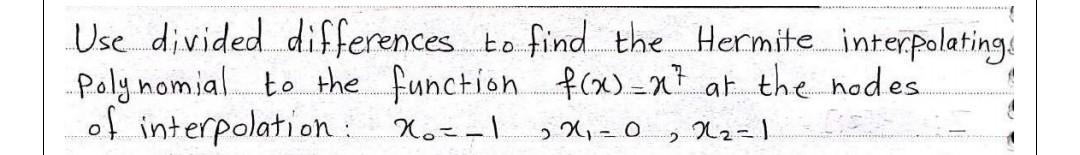 Use divided differences to find the Hermite interpolating
Polynomial to the function f(x)=x⁷ at the nodes
of interpolation: x₀=-1 , x₁=0 , x₂=1